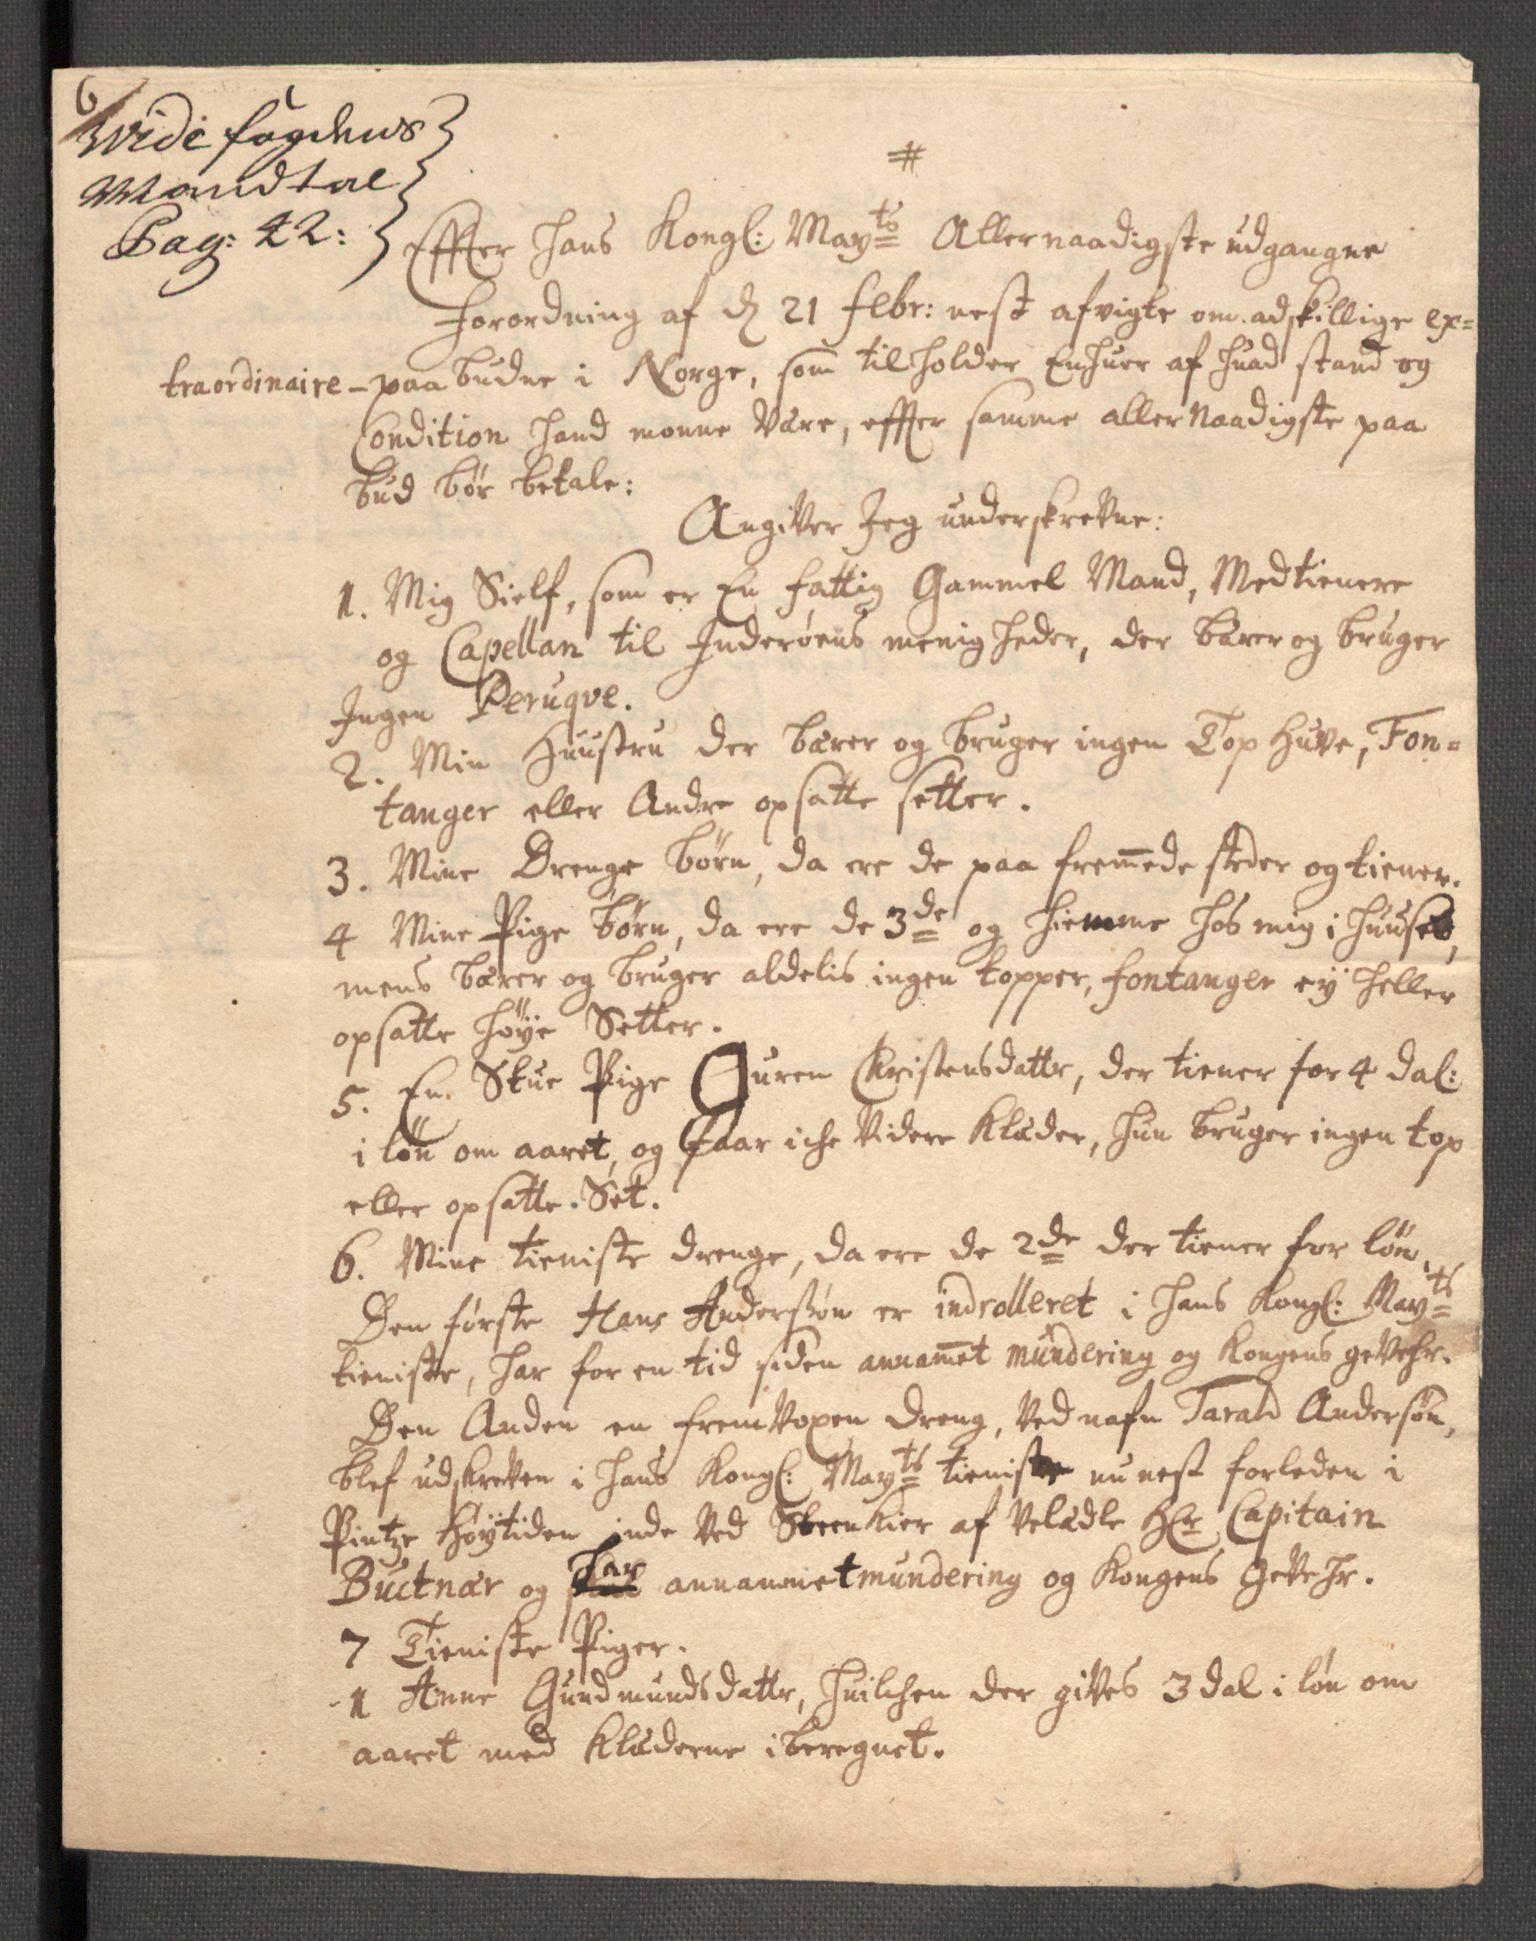 6
Vide fogdens
Mandtal
Pag: 42:
#
Effter Hans Kongl: Mayts Allernaadigste udgangne
Forordning af d 21 febr: nest afvigte om adskillige ex=
traordinaire paabudne i Norge, som tilholder Enhuer af huad stand og
Condition hand monne være, effter samme allernaadigste paa
bud bør betale:
Angiver Jeg underskrevne:
1. Mig Sielf, som er En fattig Gammel Mand, Medtienere
og Capellan til Inderøens menigheder, der bærer og bruger
Ingen Peruqve.
2. Min Huustru der bærer og bruger ingen Top Huve, Fon=
tanger eller Andre opsatte setter.
3. Mine Drenge børn, da ere de paa fremede steder og tiener.
4 Mine Pige børn, da ere de 3de og hiemme hos mig i huuset,
mens bærer og bruger aldelis ingen topper, fontanger eÿ heller
opsatte høÿe Setter.
5. En Stue Pige Guren Christensdattr, der tiener for 4 dal:
i løn om aaret, og faar iche Videre Klæder, hun bruger ingen top
eller opsatte Set.
6. Mine tieniste drenge, da ere de 2de der tiener for løn,
Den første Hans Anderssøn er indrolleret i Hans Kongl: Mayts
tieniste, har for en tid siden annamet mundering og Kongens geVehr.
Den Anden en fremVoxen dreng, Ved nafn Tarald Andersøn,
blef udskreven i Hans Kongl: Mayts tieniste nu nest forleden i
Pintze Høÿtiden inde Ved Steenkier af Velædle Hr Capitain
Buctnær og har annammet mundering og Kongens GeVehr.
7 Tieniste Piger.
1 Anne Gundmundsdattr, huilchen der gives 3 dal i løn om
aaret med Klæderne iberegnet.